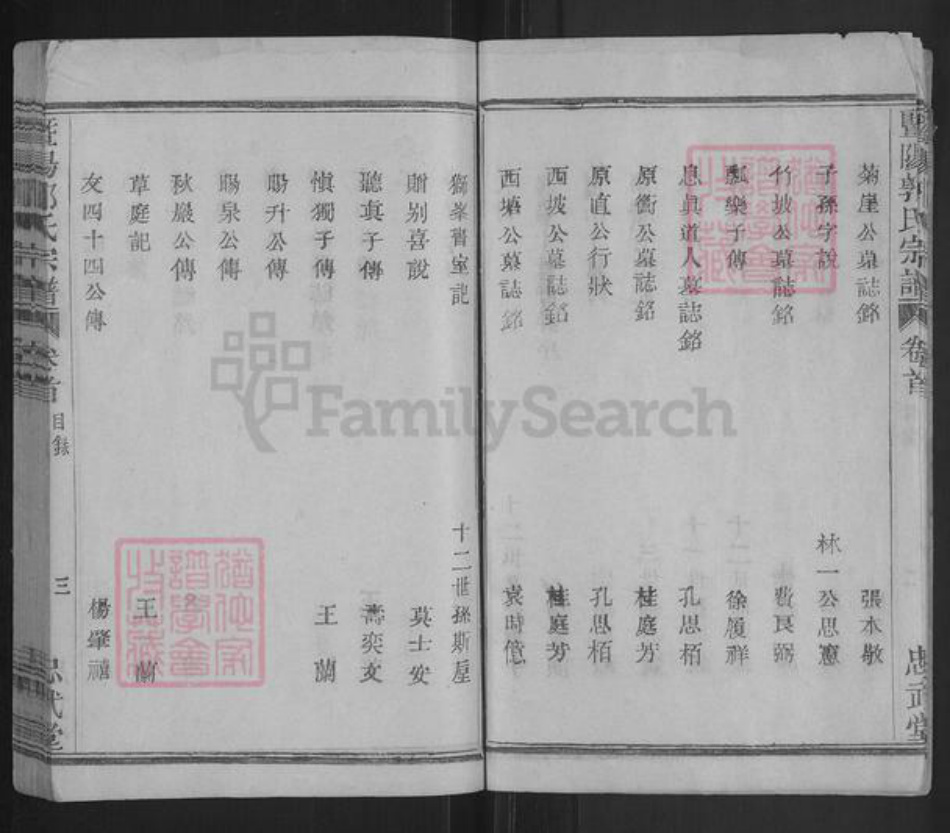 暨陽郭氏宗譜 卷首 忠武堂
菊崖公墓誌銘 張本敬
子孫字說 林一公思憲
竹坡公墓誌銘 費良弼
瓢樂子傳 徐履祥
息眞道人墓誌銘 孔思栢
原衡公墓誌銘 桂庭芳
原直公行狀 孔思栢
西坡公墓誌銘 桂庭芳
西塘公墓誌銘 袁時億
獅峯書室記 十二世孫斯垕
贈别喜說 莫士安
聽眞子傳 壽奕友
愼獨子傳 王蘭
陽升公傳
陽泉公傳
秋巖公傳
草庭記 王蘭
友四十四公傳 楊肇禧
暨陽郭氏宗譜 卷首 目錄 三 忠武堂
FamilySearch